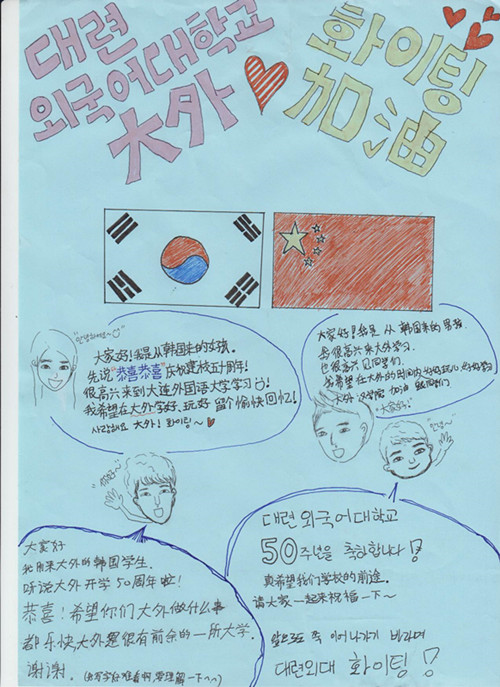 대련
외국어대학교
大外
화이팅
加油
"안녕하세요~"
大家好!我是从韩国来的女孩.
先说"恭喜恭喜"庆祝建校五十周年!
很高兴来到大连外国语大学学习!
我希望在大外学好、玩好 留个愉快回忆!
사랑해요 大外! 화이팅~
大家好!我是 从 韩国来的男孩.
很高兴来大外学习.
也很高兴见同学们.
我希望在大外的时间内
大外 汉学院 加油
"大家好"
"안녕~"
大家好
我用来大外的韩国学生.
听说大外开学50周年啦!
恭喜!希望你们大外做什么事
都乐快,大外是很有前余的一所大学.
谢谢.
대련외국어대학교
50주년을 축하합니다!
真希望我们学校的前途.
请大家一起来祝福一下~
앞으로도 쭉 이어나가기 바라며
대련외대 화이팅!